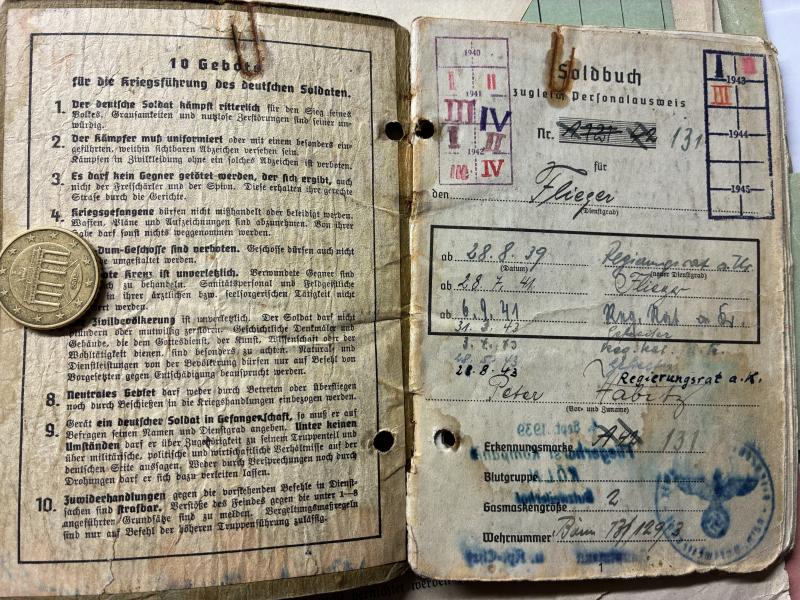 10 Gebote
für die Kriegsführung des deutschen Soldaten.
1. Der deutsche Soldat kämpft ritterlich für den Sieg seines
Volkes. Grausamkeiten und nutzlose Zerstörungen sind seiner un-
würdig.
2. Der Kämpfer muß uniformiert oder mit einem besonders ein-
geführten, weithin sichtbaren Abzeichen versehen sein.
Kämpfen in Zivilkleidung ohne ein solches Abzeichen ist verboten.
3. Es darf kein Gegner getötet werden, der sich ergibt, auch
nicht der Freischärler und der Spion. Diese erhalten ihre gerechte
Strafe durch die Gerichte.
4. Kriegsgefangene dürfen nicht mißhandelt oder beleidigt werden.
Waffen, Pläne und Aufzeichnungen sind abzunehmen. Von ihrer
Habe darf sonst nichts weggenommen werden.
Dum-Geschosse sind verboten. Geschosse dürfen auch nicht
umgestaltet werden.
Kreuz ist unverletzlich. Verwundete Gegner sind
zu behandeln. Sanitätspersonal und Feldgeistliche
in ihrer ärztlichen bzw. seelsorgerischen Tätigkeit nicht
werden.
Zivilbevölkerung ist unverletzlich. Der Soldat darf nicht
plündern oder mutwillig zerstören. Geschichtliche Denkmäler und
Gebäude, die dem Gottesdienst, der Kunst, Wissenschaft oder der
Wohltätigkeit dienen, sind besonders zu achten. Natural- und
Dienstleistungen von der Bevölkerung dürfen nur auf Befehl von
Vorgesetzten gegen Entschädigung beansprucht werden.
8. Neutrales Gebiet darf weder durch Betreten oder Überfliegen
noch durch Beschießen in die Kriegshandlungen einbezogen werden.
9. Gerät ein deutscher Soldat in Gefangenschaft, so muß er auf
Befragen seinen Namen und Dienstgrad angeben. Unter keinen
Umständen darf er über Zugehörigkeit zu seinem Truppenteil und
über militärische, politische und wirtschaftliche Verhältnisse auf der
deutschen Seite aussagen. Weder durch Versprechungen noch durch
Drohungen darf er sich dazu verleiten lassen.
10. Zuwiderhandlungen gegen die vorstehenden Befehle in Dienst-
sachen sind strafbar. Verstöße des Feindes gegen die unter 1–8
angeführten Grundsätze sind zu melden. Vergeltungsmaßregeln
sind nur auf Befehl der höheren Truppenführung zulässig.
1940
I II
1941
III IV
1942
I II
III IV
Soldbuch
zugleich Personalausweis
Nr. 131
für
den Flieger
(Dienstgrad)
I 1943
III
1944
1945
ab 28.8.39 Regierungsrat
(Datum) (neuer Dienstgrad)
ab 28.7.41 Flieger
ab 6.9.41 Reg. Rat
31.3.43
28.8.43 Regierungsrat a.K.
Peter Habitz
(Vor- und Zuname)
Sept. 1939
Erkennungsmarke 131
KÖLN
Blutgruppe
Gasmaskengröße 2
Wehrnummer Bonn
1